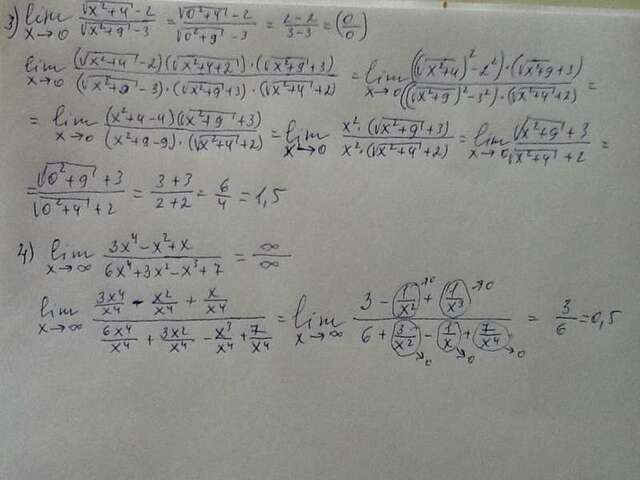 3) lim x→0 (√(x²+4) − 2)/(√(x²+9) − 3) = (√(0²+4) − 2)/(√(0²+9) − 3) = (2−2)/(3−3) = (0/0)
lim x→0 ((√(x²+4) − 2)(√(x²+4 + 2)·(√(x²+9) + 3))/((√(x²+9) − 3)·(√(x²+9) + 3)·(√(x²+4) + 2)) = lim x→0 ((√(x²+4))² − 2²)·(√(x²+9) + 3)/((√(x²+9))² − 3²)·(√(x²+4) + 2) =
= lim x→0 (x²+4−4)(√(x²+9) + 3)/(x²+9−9)·(√(x²+4) + 2) = lim x→0 x²·(√(x²+9) + 3)/x²·(√(x²+4) + 2) = lim x→0 (√(x²+9) + 3)/(√(x²+4) + 2) =
= (√(0²+9) + 3)/(√(0²+4) + 2) = (3+3)/(2+2) = 6/4 = 1,5
4) lim x→∞ (3x⁴ − x² + x)/(6x⁴ + 3x² − x³ + 7) = ∞/∞
lim x→∞ (3x⁴/x⁴ − x²/x⁴ + x/x⁴)/(6x⁴/x⁴ + 3x²/x⁴ − x³/x⁴ + 7/x⁴) = lim x→∞ (3 − 1/x² →0 + 1/x³ →0)/(6 + 3/x² →0 − 1/x →0 + 7/x⁴ →0) = 3/6 = 0,5